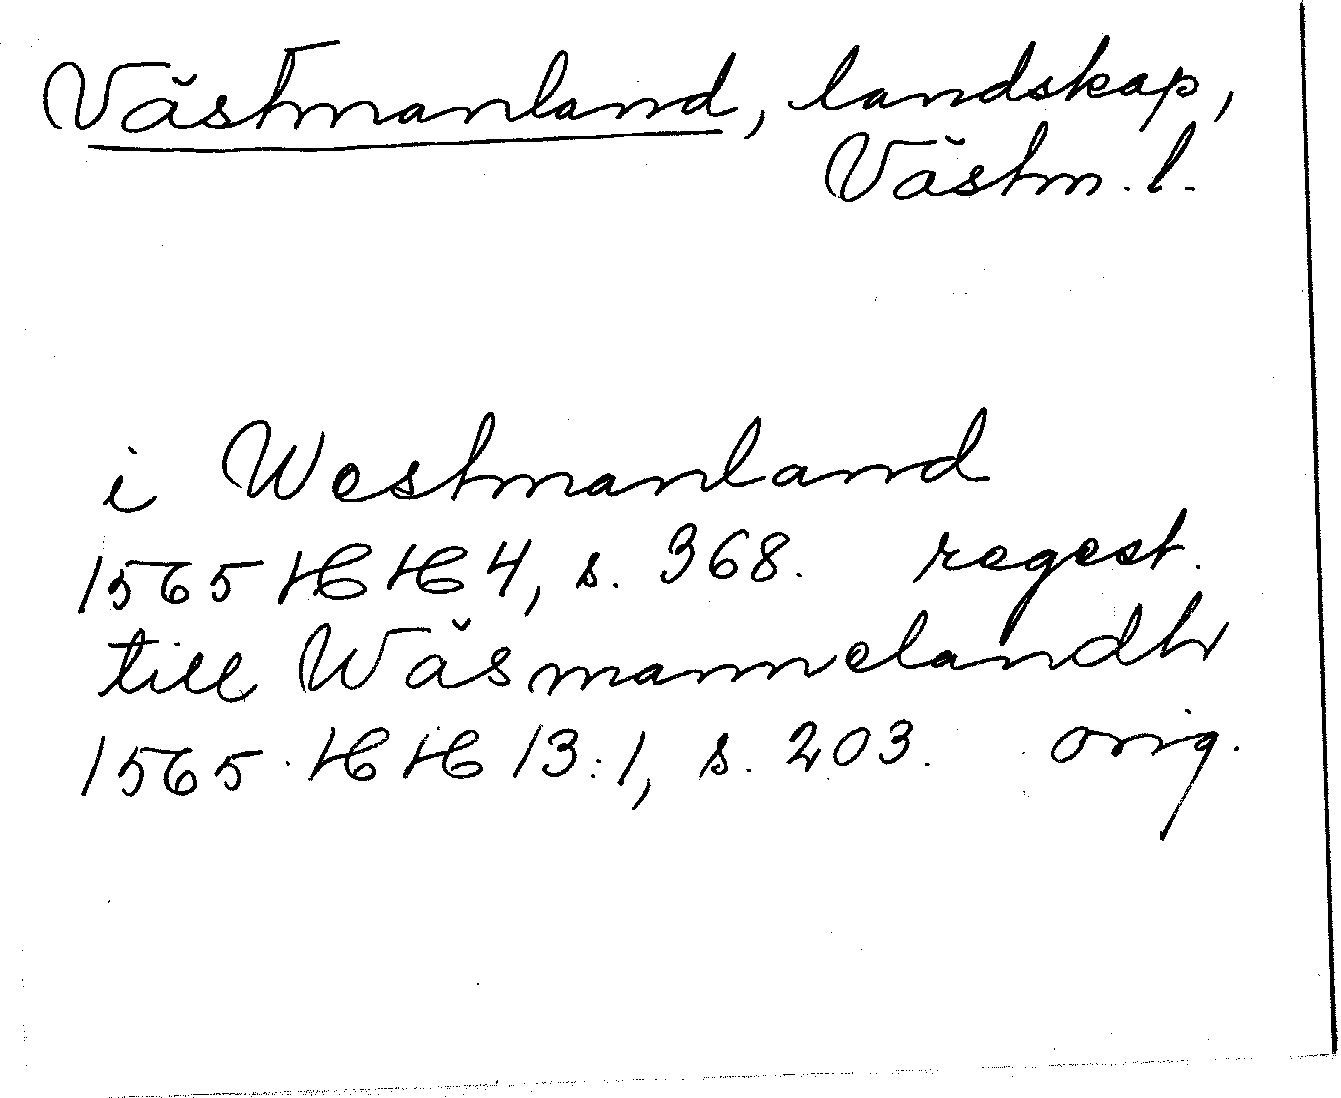 Västmanland, landskap,
Västm. l.
i Westmanland
1565 HH 4, s. 368. regest.
till Wäsmannelandh
1565 HH 13:1, s. 203. orig.